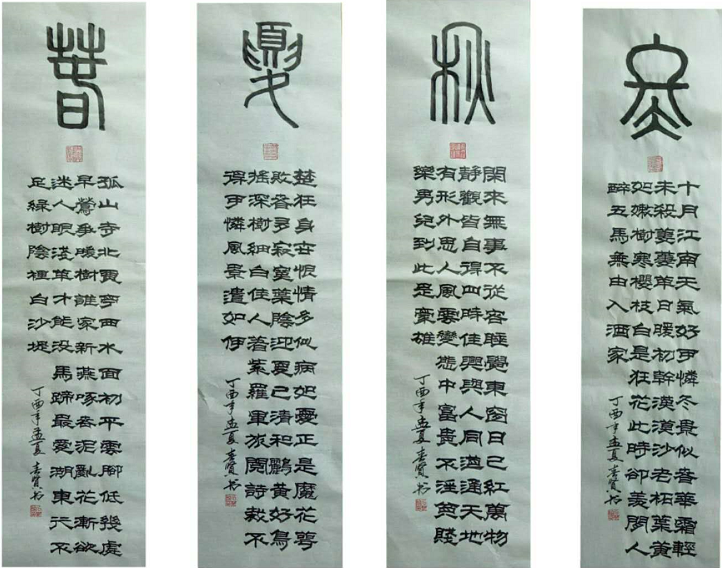 春
孤山寺北賈亭西水面初平雲腳低幾處
早鶯爭暖樹誰家新燕啄春泥亂花漸欲
迷人眼淺草才能沒馬蹄最愛湖東行不
足綠樹陰裡白沙堤
丁酉年孟夏春賢书
夏
楚狂身世恨情多似病如憂正是魔花萼
敗春多寂寞葉陰迎夏已清和鸝黃好鳥
搖深樹細白佳人著紫羅軍旅閱詩裁不
得可憐風景遣如何
丁酉年孟夏春賢书
秋
閑來無事不從容睡覺東窗日已紅萬物
靜觀皆自得四時佳興與人同道通天地
有形外思人風雲變態中富貴不淫貧賤
樂男兒到此是豪雄
丁酉年孟夏春賢书
冬
十月江南天氣好可憐冬景似春華霜輕
未殺萋萋草日暖初幹漠漠沙老柘葉黃
如嫩樹寒櫻枝白是狂花此時卻羨閑人
醉五馬無由入酒家
丁酉年孟夏春賢书